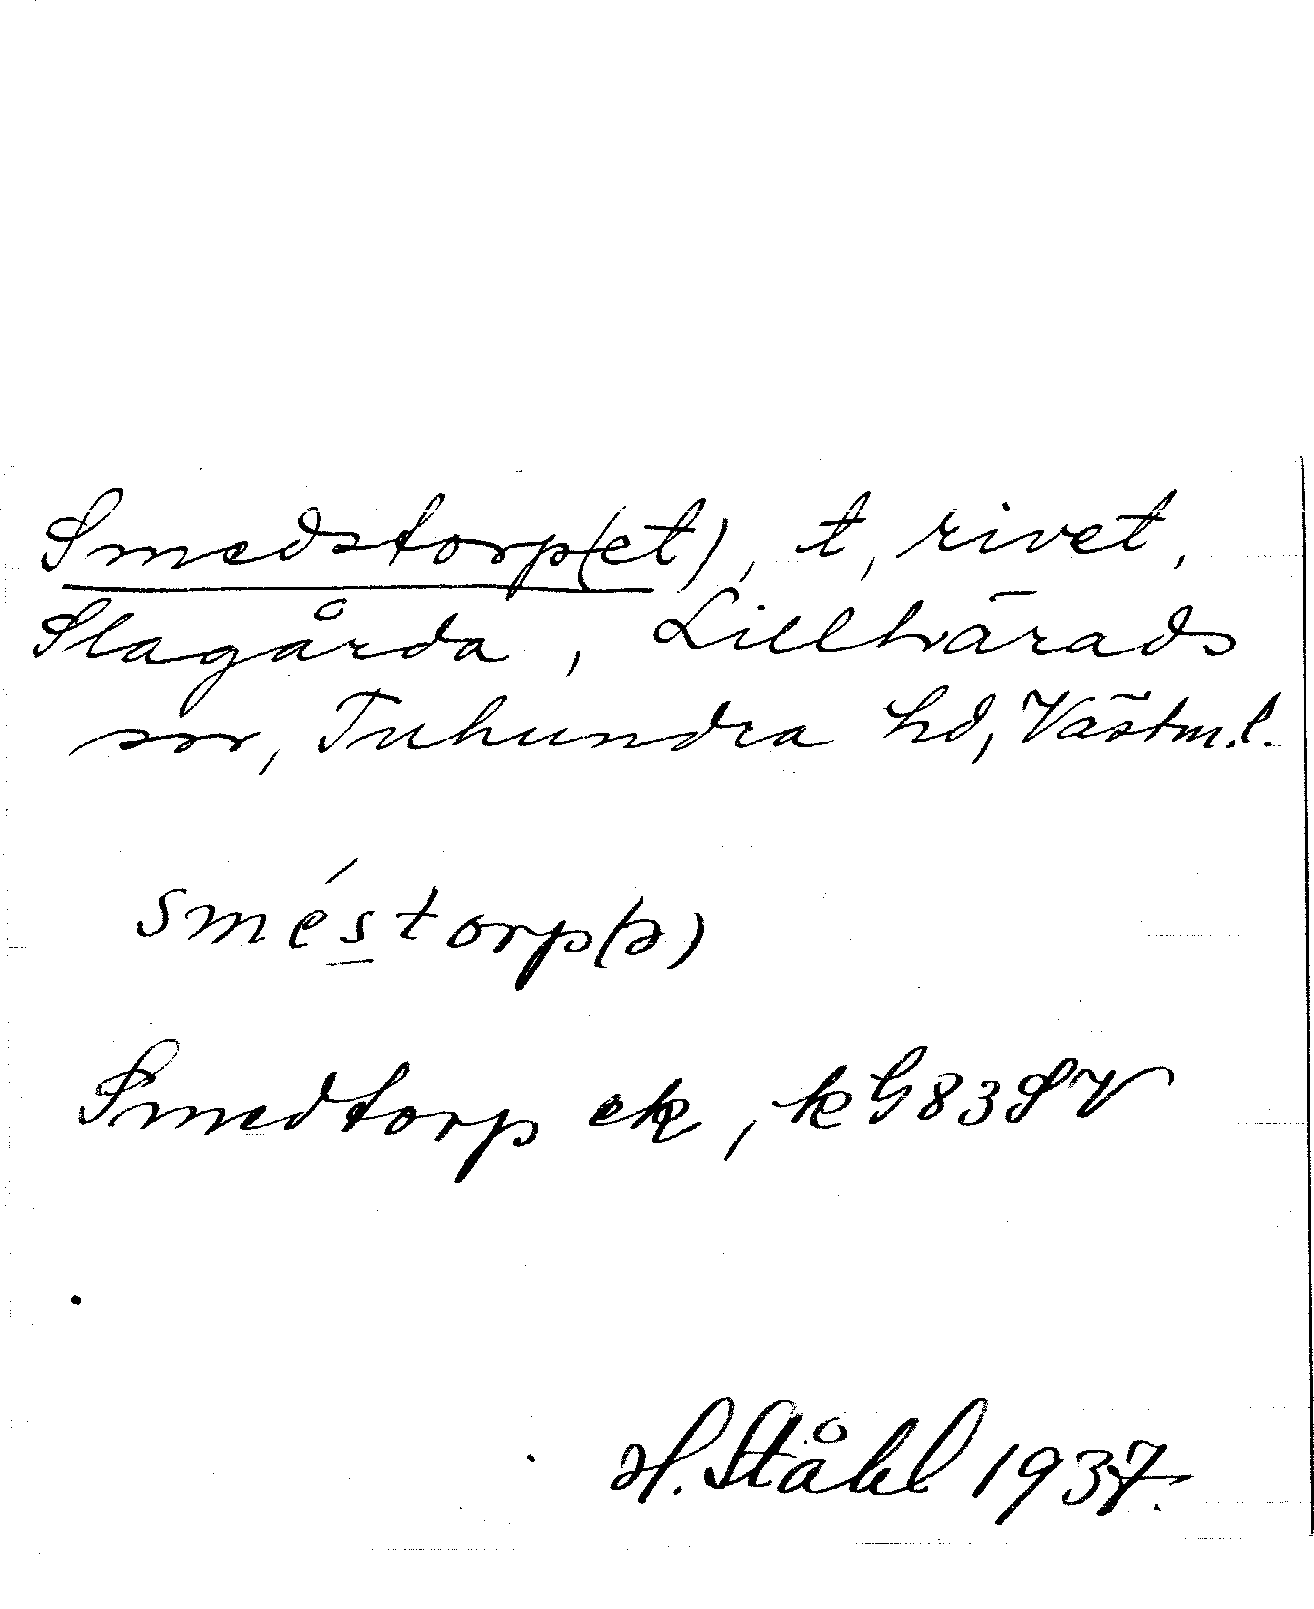 Smedstorp(et), t, rivet,
Slagårda, Lillhärads
sn, Tuhundra hd, Västm.l.
sméstorp(ə)
Smedtorp ek, k G83SV
H. Ståhl 1937.